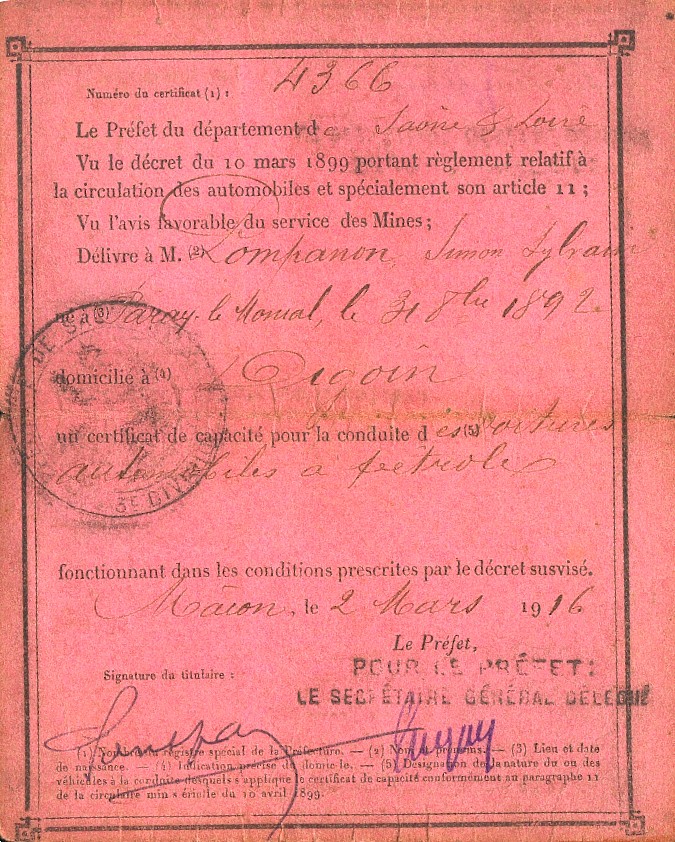 Numéro du certificat (1) : 4366
Le Préfet du département de Saône & Loire
Vu le décret du 10 mars 1899 portant règlement relatif à
la circulation des automobiles et spécialement son article 11 ;
Vu l'avis favorable du service des Mines ;
Délivre à M. (2) Companon, Simon Sylvain
né à (3) Paray-le-Monial, le 31 8bre 1892
domicilié à (4) Digoin
un certificat de capacité pour la conduite des (5) voitures
automobiles à pétrole
fonctionnant dans les conditions prescrites par le décret susvisé.
Mâcon, le 2 Mars 1916
Le Préfet,
POUR LE PRÉFET :
LE SECRÉTAIRE GÉNÉRAL DÉLÉGUÉ
Signature du titulaire :
(1) Numéro du registre spécial de la Préfecture. — (2) Nom et prénoms. — (3) Lieu et date
de naissance. — (4) Indication précise du domicile. — (5) Désignation de la nature du ou des
véhicules à la conduite desquels s'applique le certificat de capacité conformément au paragraphe 11
de la circulaire ministérielle du 10 avril 1899.
DE SAÔ
3E DIVISION